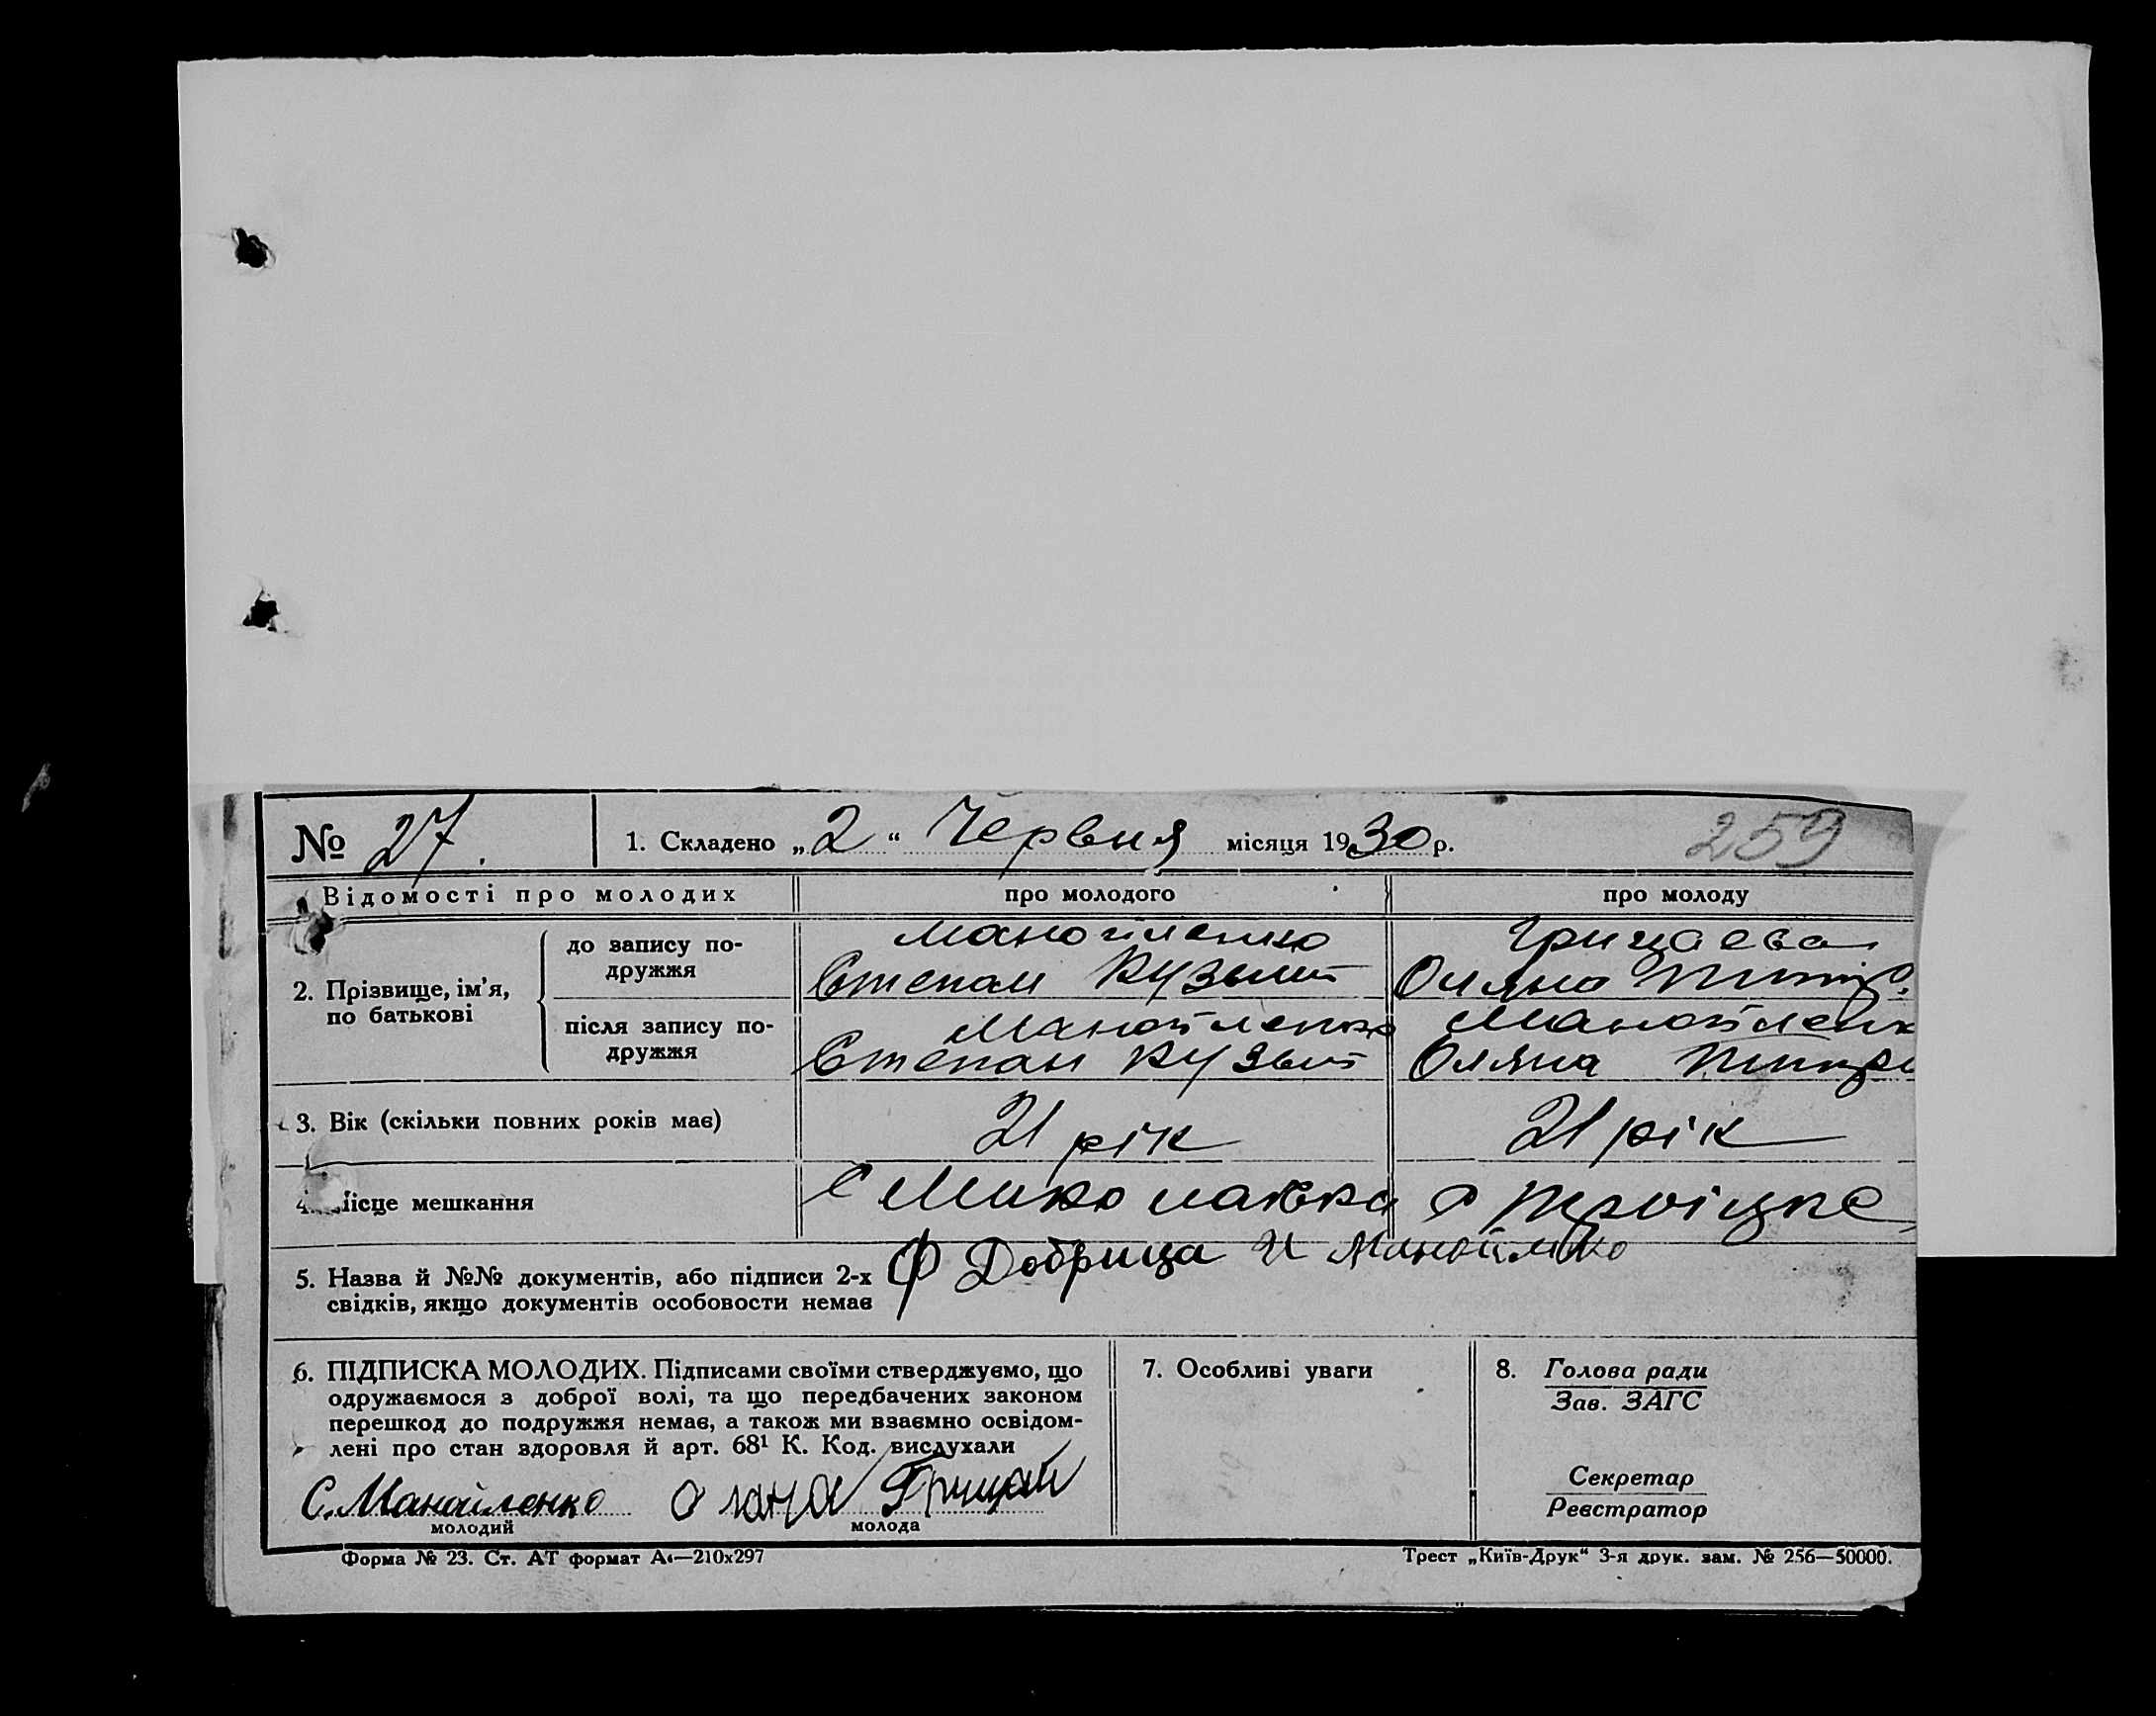 № 27. 1. Складено „2“ Червня місяця 1930 р. 259
Відомості про молодих про молодого про молоду
2. Прізвище, ім’я, по батькові
до запису по-
дружжя
Манойленко
Степан Кузьми
Грицаева
Оляна
після запису по-
дружжя
Манойленко
Степан Кузьм
Манойленк
Оляна
3. Вік (скільки повних років має) 21 рік 21 рік
4. Місце мешкання с Миколаївка с Троіцке
5. Назва й №№ документів, або підписи 2-х
свідків, якщо документів особовости немає
Ф Добрица И Манойленко
6. ПІДПИСКА МОЛОДИХ. Підписами своїми стверджуємо, що
одружаємося з доброї волі, та що передбачених законом
перешкод до подружжя немає, а також ми взаємно освідом-
лені про стан здоровля й арт. 68¹ К. Код. вислухали
С. Манойленко Оляна Грицай
молодий молода
7. Особливі уваги
8. Голова ради
Зав. ЗАГС
Секретар
Реєстратор
Форма № 23. Ст. АТ формат А₄—210x297 Трест „Київ-Друк“ 3-я друк. зам. № 256—50000.